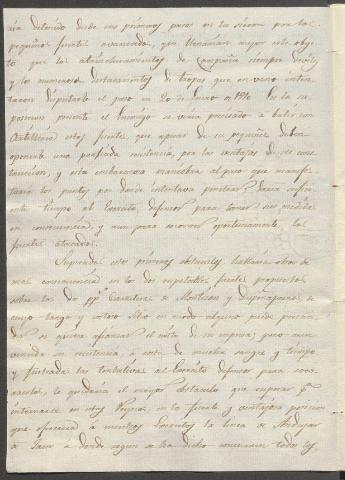 ria detenido desde sus primeros pasos en la sierra por los
pequeños fuertes avanzados, que llenarian mejor este obje
to que los atrincheramientos de Campaña siempre deviles
y los numerosos destacamentos de tropas que en vano inten
taron disputarle el paso en 20 de Enero de 1810. En la su
posicion presente el Enemigo se veria precisado a batir con
Artilleria estos fuertes, que apesar de su pequeñez deben
oponerle una porfiada resistencia, por las ventajas de su cons
truccion, y esta embarazosa maniobra al paso que manifes
taria los puntos por donde intentava penetrar daria sufici
ente tiempo al Exercito defensor para tomar sus medidas
en consecuencia, y aun para socorrer oportunamente los
fuertes atacados.
Superados estos primeros obstaculos hallaria otros de
mas consecuencia en los dos respetables fuertes propuestos
sobre las dos pp.s Carreteras de Montizon y Despeñaperros de
cuyo largo y costoso sitio en modo alguno puede prescin
dir si quiere afianzar el exito de su empresa; pero aun
vencida su resistencia, a costa de mucha sangre y tiempo
y frustradas las tentativas del Exercito defensor para con
servarlos, le quedaria el mayor obstaculo que superar p.a
internarse en estos Reynos, en la fuerte y ventajosa posicion
que ofreceria a nuestros Exercitos la linea de Andujar
a Jaen a donde segun se ha dicho concurren todos los